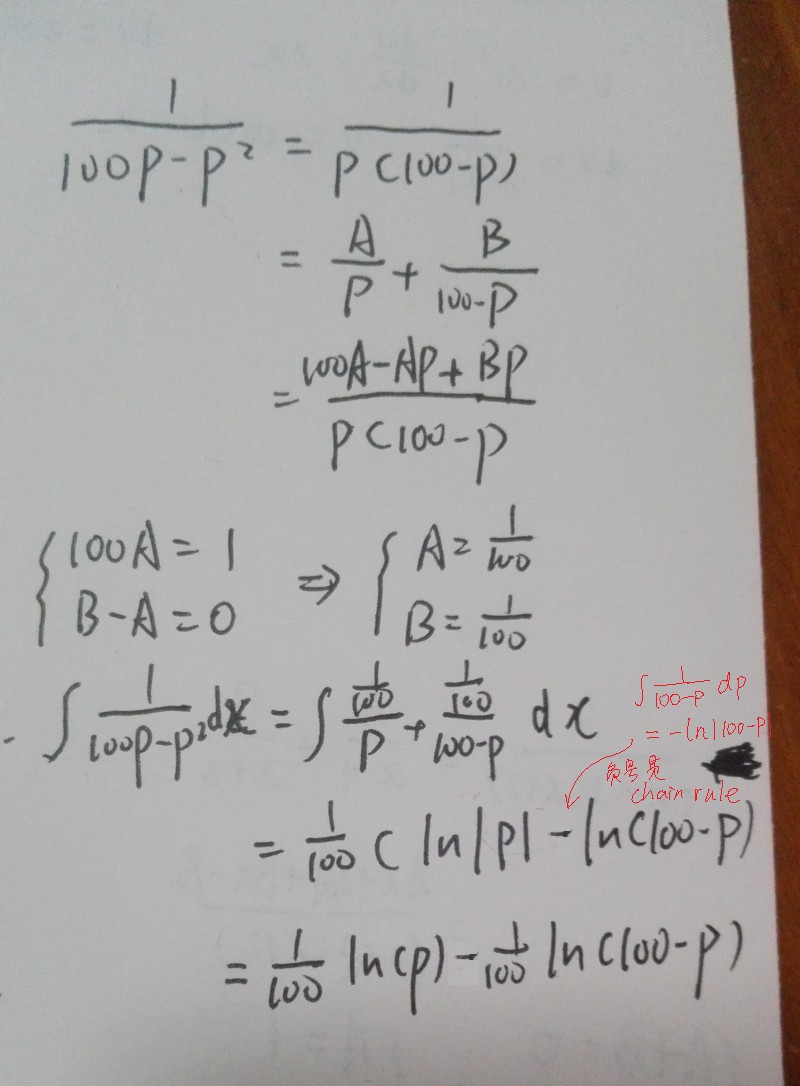 1/(100p-p²) = 1/(p(100-p))
= A/p + B/(100-p)
= (100A-Ap+Bp)/(p(100-p)
{100A=1 ⇒ {A=1/100
{B-A=0 {B=1/100
∫ 1/(100p-p²) dx = ∫ (1/100)/p + (1/100)/(100-p) dx
∫ 1/(100-p) dp
= -ln|100-p|
负号是
chain rule
= 1/100 (ln|p| - ln(100-p)
= 1/100 ln(p) - 1/100 ln(100-p)